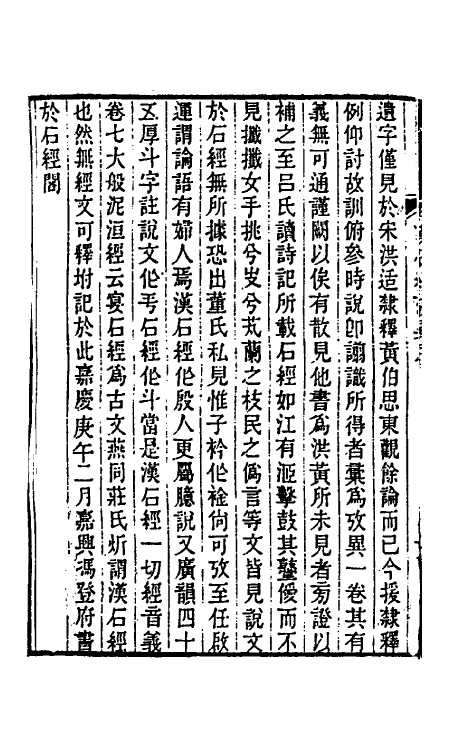 遺字僅見於宋洪适隸釋黃伯思東觀餘論而已今援隸釋
例仰討故訓俯參時說卽謭識所得者彚爲攷異一卷其有
義無可通謹闕以俟有散見他書爲洪黃所未見者㫄證以
補之至呂氏讀詩記所載石經如江有洍擊鼓其鼞僾而不
見攕攕女手挑兮𡴂兮芄蘭之枝民之僞言等文皆見說文
於石經無所據恐出董氏私見惟子衿作䘳尙可攷至任啟
運謂論語有婦人焉漢石經作殷人更屬臆說又廣韻四十
五厚斗字註說文作㪷石經作斗當是漢石經一切經音義
卷七大般泥洹經云宴石經爲古文燕同莊氏炘謂漢石經
也然無經文可釋坿記於此嘉慶庚午二月嘉興馮登府書
於石經閣